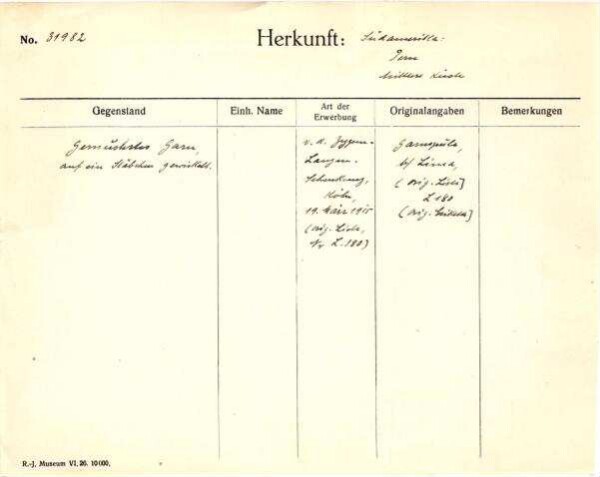 No. 31982
Herkunft: Südamerika:
Peru
Mittlere Küste
Gegenstand
Einh. Name
Art der Erwerbung
Originalangaben
Bemerkungen
Gemustertes Garn,
auf ein Stäbchen gewickelt.
v. d. Zypen-
Langen-
Schenkung,
Köln,
19. März 1915
(Orig. Liste,
Nr L. 180)
Garnspule,
bei Lima,
(Orig. Liste)
L 180
(Orig.
R.-J. Museum VI. 26. 10000.